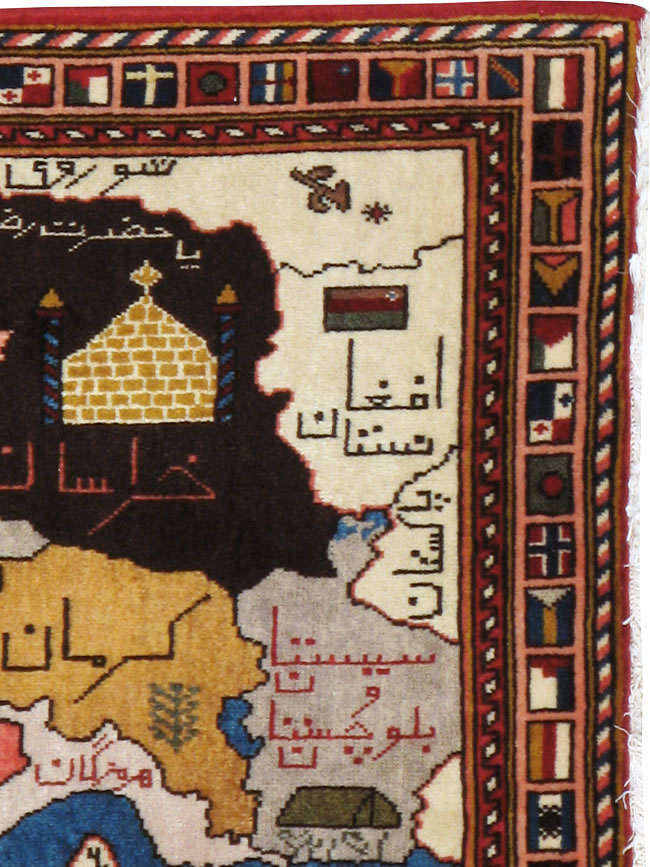 شوروی
یا حضرت رض
افغا
نستان
خراسان
پاکستان
کرمان
سیستا
ن
و
بلوچستا
ن
هرمزگان